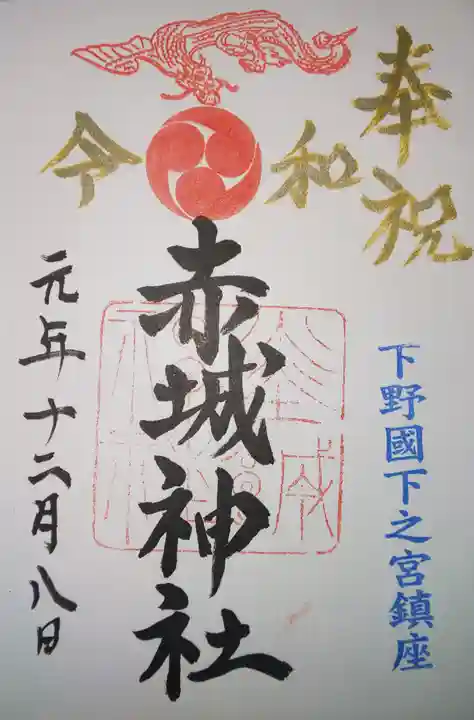 奉祝
令和
下野國下之宮鎮座
赤城神社
元年十二月八日